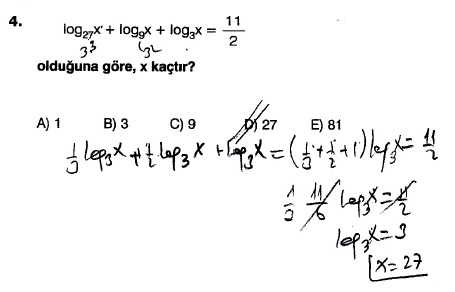 4. log₂₇x + log₉x + log₃x = 11/2
3³ 3²
olduğuna göre, x kaçtır?
A) 1 B) 3 C) 9 D) 27 E) 81
1/3 log₃x + 1/2 log₃x + log₃x = (1/3 + 1/2 + 1) log₃x = 11/2
1/3 11/6 log₃x = 11/2
log₃x = 3
x = 27